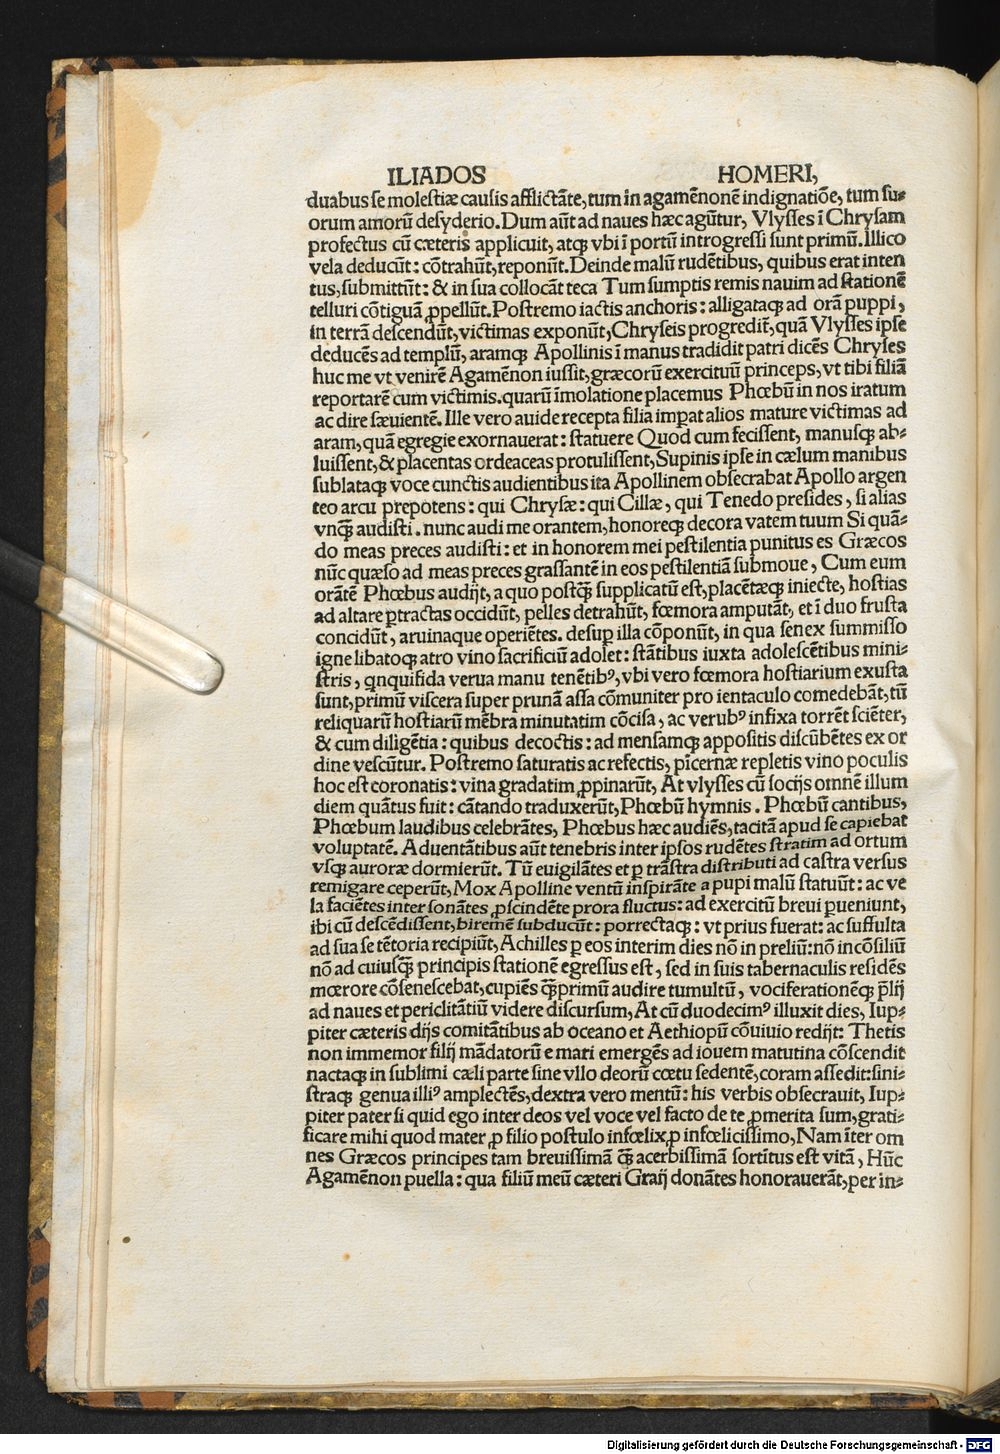 ILIADOS HOMERI,
duabus se molestiæ causis afflictãte, tum in agamẽnonẽ indignatiõe, tum su⸗
orum amorũ desyderio. Dum aũt ad naues hæc agũtur, Vlysses ĩ Chrysam
profectus cũ cæteris applicuit, atqꝫ vbi ĩ portũ introgressi sunt primũ. Illico
vela deducũt: cõtrahũt, reponũt. Deinde malũ rudẽtibus, quibus erat inten
tus, submittũt: & in sua collocãt teca Tum sumptis remis nauim ad stationẽ
telluri cõtiguã ꝓpellũt. Postremo iactis anchoris: alligataqꝫ ad orã puppi,
in terrã descendũt, victimas exponũt, Chryseis progredit̃, quã Vlysses ipse
deducẽs ad templũ, aramqꝫ Apollinis ĩ manus tradidit patri dicẽs Chryses
huc me vt venirẽ Agamẽnon iussit, græcorũ exercituũ princeps, vt tibi filiã
reportarẽ cum victimis. quarũ ĩmolatione placemus Phœbũ in nos iratum
ac dire sæuientẽ. Ille vero auide recepta filia imꝑat alios mature victimas ad
aram, quã egregie exornauerat: statuere Quod cum fecissent, manusqꝫ ab⸗
luissent, & placentas ordeaceas protulissent, Supinis ipse in cælum manibus
sublataqꝫ voce cunctis audientibus ita Apollinem obsecrabat Apollo argen
teo arcu prepotens: qui Chrysæ: qui Cillæ, qui Tenedo presides, si alias
vnqꝫ̃ audisti. nunc audi me orantem, honoreqꝫ decora vatem tuum Si quã⸗
do meas preces audisti: et in honorem mei pestilentia punitus es Græcos
nũc quæso ad meas preces grassantẽ in eos pestilentiã submoue, Cum eum
orãtẽ Phœbus audijt, a quo postqꝫ̃ supplicatũ est, placẽtæqꝫ iniecte, hostias
ad altare ꝑtractas occidũt, pelles detrahũt, fœmora amputãt, et ĩ duo frusta
concidũt, aruinaque operiẽtes. desuꝑ illa cõponũt, in qua senex summisso
igne libatoqꝫ atro vino sacrificiũ adolet: stãtibus iuxta adolescẽtibus mini⸗
stris, qnquifida verua manu tenẽtibꝰ, vbi vero fœmora hostiarium exusta
sunt, primũ viscera super prunã assa cõmuniter pro ientaculo comedebãt, tũ
reliquarũ hostiarũ mẽbra minutatim cõcisa, ac verubꝰ infixa torrẽt sciẽter,
& cum diligẽtia: quibus decoctis: ad mensamqꝫ appositis discũbẽtes ex or
dine vescũtur. Postremo saturatis ac refectis, pĩcernæ repletis vino poculis
hoc est coronatis: vina gradatim ꝓpinarũt, At vlysses cũ socijs omnẽ illum
diem quãtus fuit: cãtando traduxerũt, Phœbũ hymnis. Phœbũ cantibus,
Phœbum laudibus celebrãtes, Phœbus hæc audiẽs, tacitã apud se capiebat
voluptatẽ. Aduentãtibus aũt tenebris inter ipsos rudẽtes stratim ad ortum
vsqꝫ auroræ dormierũt. Tũ euigilãtes et ꝑ trãstra distributi ad castra versus
remigare ceperũt, Mox Apolline ventũ inspirãte a pupi malũ statuũt: ac ve
la faciẽtes inter sonãtes ꝓscindẽte prora fluctus: ad exercitũ breui ꝑueniunt,
ibi cũ descẽdissent, biremẽ subducũt: porrectaqꝫ: vt prius fuerat: ac suffulta
ad sua se tẽtoria recipiũt, Achilles ꝑ eos interim dies nõ in preliũ: nõ in cõsiliũ
nõ ad cuiusqꝫ̃ principis stationẽ egressus est, sed in suis tabernaculis residẽs
mœrore cõsenescebat, cupiẽs qꝫ̃primũ audire tumultũ, vociferationẽqꝫ p̃lij
ad naues et periclitãtiũ videre discursum, At cũ duodecimꝰ illuxit dies, Iup⸗
piter cæteris dijs comitãtibus ab oceano et Aethiopũ cõuiuio redijt: Thetis
non immemor filij mãdatorũ e mari emergẽs ad iouem matutina cõscendit
nactaqꝫ in sublimi cæli parte sine vllo deorũ cœtu sedentẽ, coram assedit: sini⸗
straqꝫ genua illiꝰ amplectẽs, dextra vero mentũ: his verbis obsecrauit, Iup⸗
piter pater si quid ego inter deos vel voce vel facto de te ꝓmerita sum, grati⸗
ficare mihi quod mater ꝓ filio postulo infœlix ꝓ infœlicissimo, Nam ĩter om
nes Græcos principes tam breuissimã qꝫ̃ acerbissimã sortitus est vitã, Hũc
Agamẽnon puella: qua filiũ meũ cæteri Graij donãtes honorauerãt, per in⸗
Digitalisierung gefördert durch die Deutsche Forschungsgemeinschaft - DFG